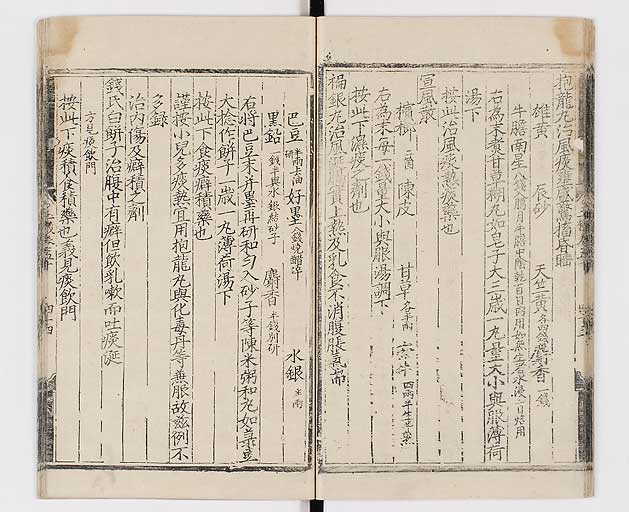 抱龍丸治風痰壅盛驚搐昏睡
雄黃 辰砂 天竺黃各四錢 麝香一錢
牛膽南星八錢臘月牛膽中陰乾百日
右為末煮甘草糊丸如皂子大三歲一丸量大小與服薄荷
湯下
按此治風痰熱痰藥也
宣風散
檳榔二箇 陳皮 甘草各半兩
右為末每一錢量大小與服湯調下
按此下濕痰之劑也
褊銀丸治風涎膈實上熱及乳食不消腹脹氣
巴豆半兩去油研 好墨八錢燒醋淬 水銀半兩
黑鉛錢半與水銀結砂子 麝香半錢別研
右將巴豆末并墨再研和勻入砂子等陳米粥和丸如菉豆
大捻作餠子一歲一丸薄荷湯下
按此下食痰癖積藥也
謹按小兒多痰熱宜用抱龍丸與化毒丹等兼服故玆例不
多錄
治內傷及癖積之劑
錢氏白餠子治腹中有癖但飮乳嗽而吐痰涎
方見痰飮門
按此下痰積食積藥也義見痰飮門